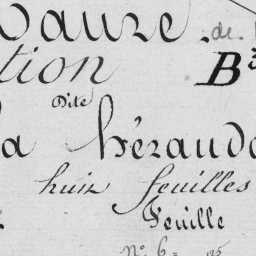 Vauze de
tion B
Dite
la Héraude
huit feuilles
Feuille
N° 6